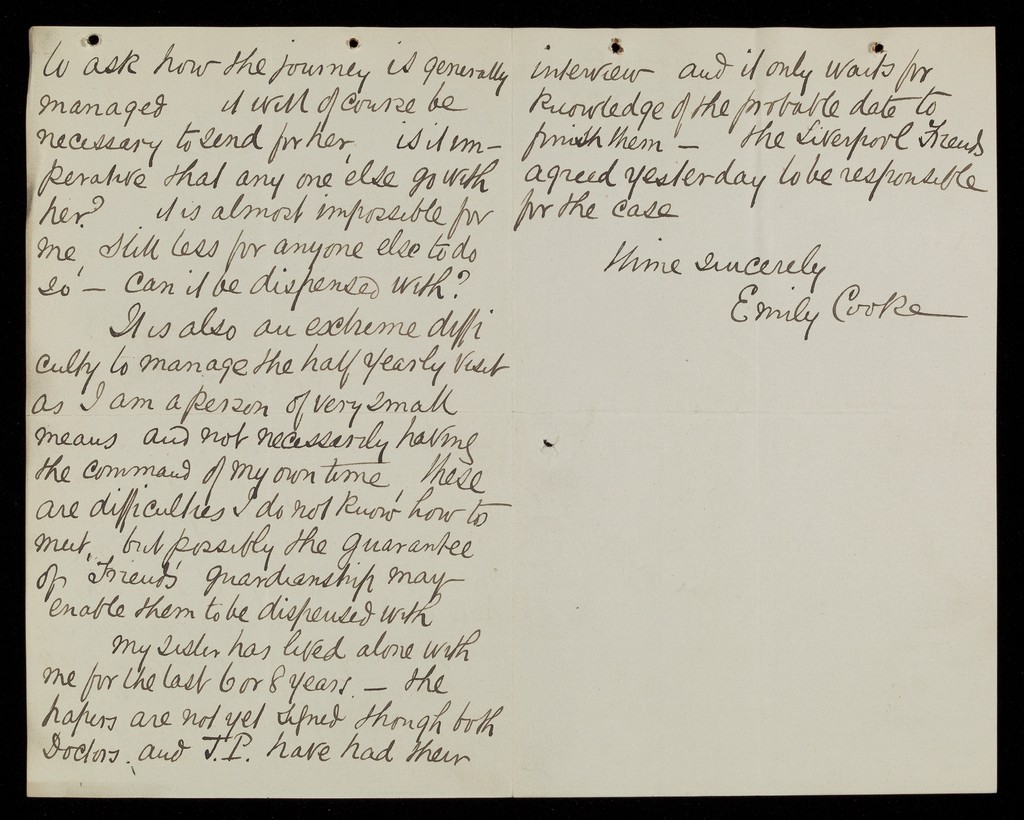 to ask how the journey is generally
managed it will of course be
necessary to send for her, is it im-
perative that any one else go with
her? it is almost impossible for
me, still less for anyone else to do
so - can it be dispensed with?
It is also an extreme diffi
culty to manage the half yearly visit
as I am a person of very small
means and not necessarily having
the command of my own time, these
are difficulties I do not know how to
meet, but possibly the guarantee
of Friends guardianship may
enable them to be dispensed with
My sister has lived alone with
me for the last 6 or 8 years. - The
papers are not yet signed though both
Doctors. and J.P. have had their
interview and it only waits for
knowledge of the probable date to
finish them - The Liverpool Friends
agreed yesterday to be responsible
for the case
Thine sincerely
Emily Cooke